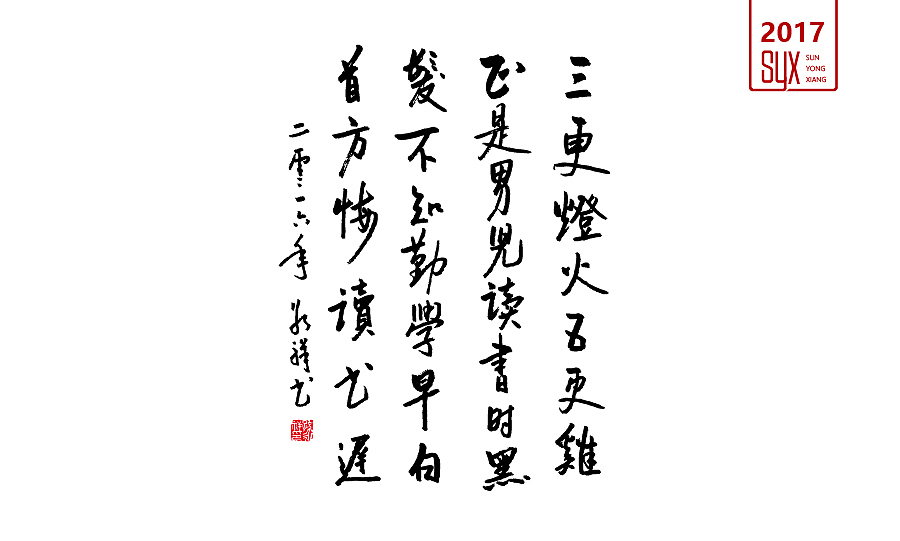 2017
SYX
SUN
YONG
XIANG
三更燈火五更雞
正是男兒读書时黑
髮不知勤學早白
首方悔讀书遲
二零一六年 祥书